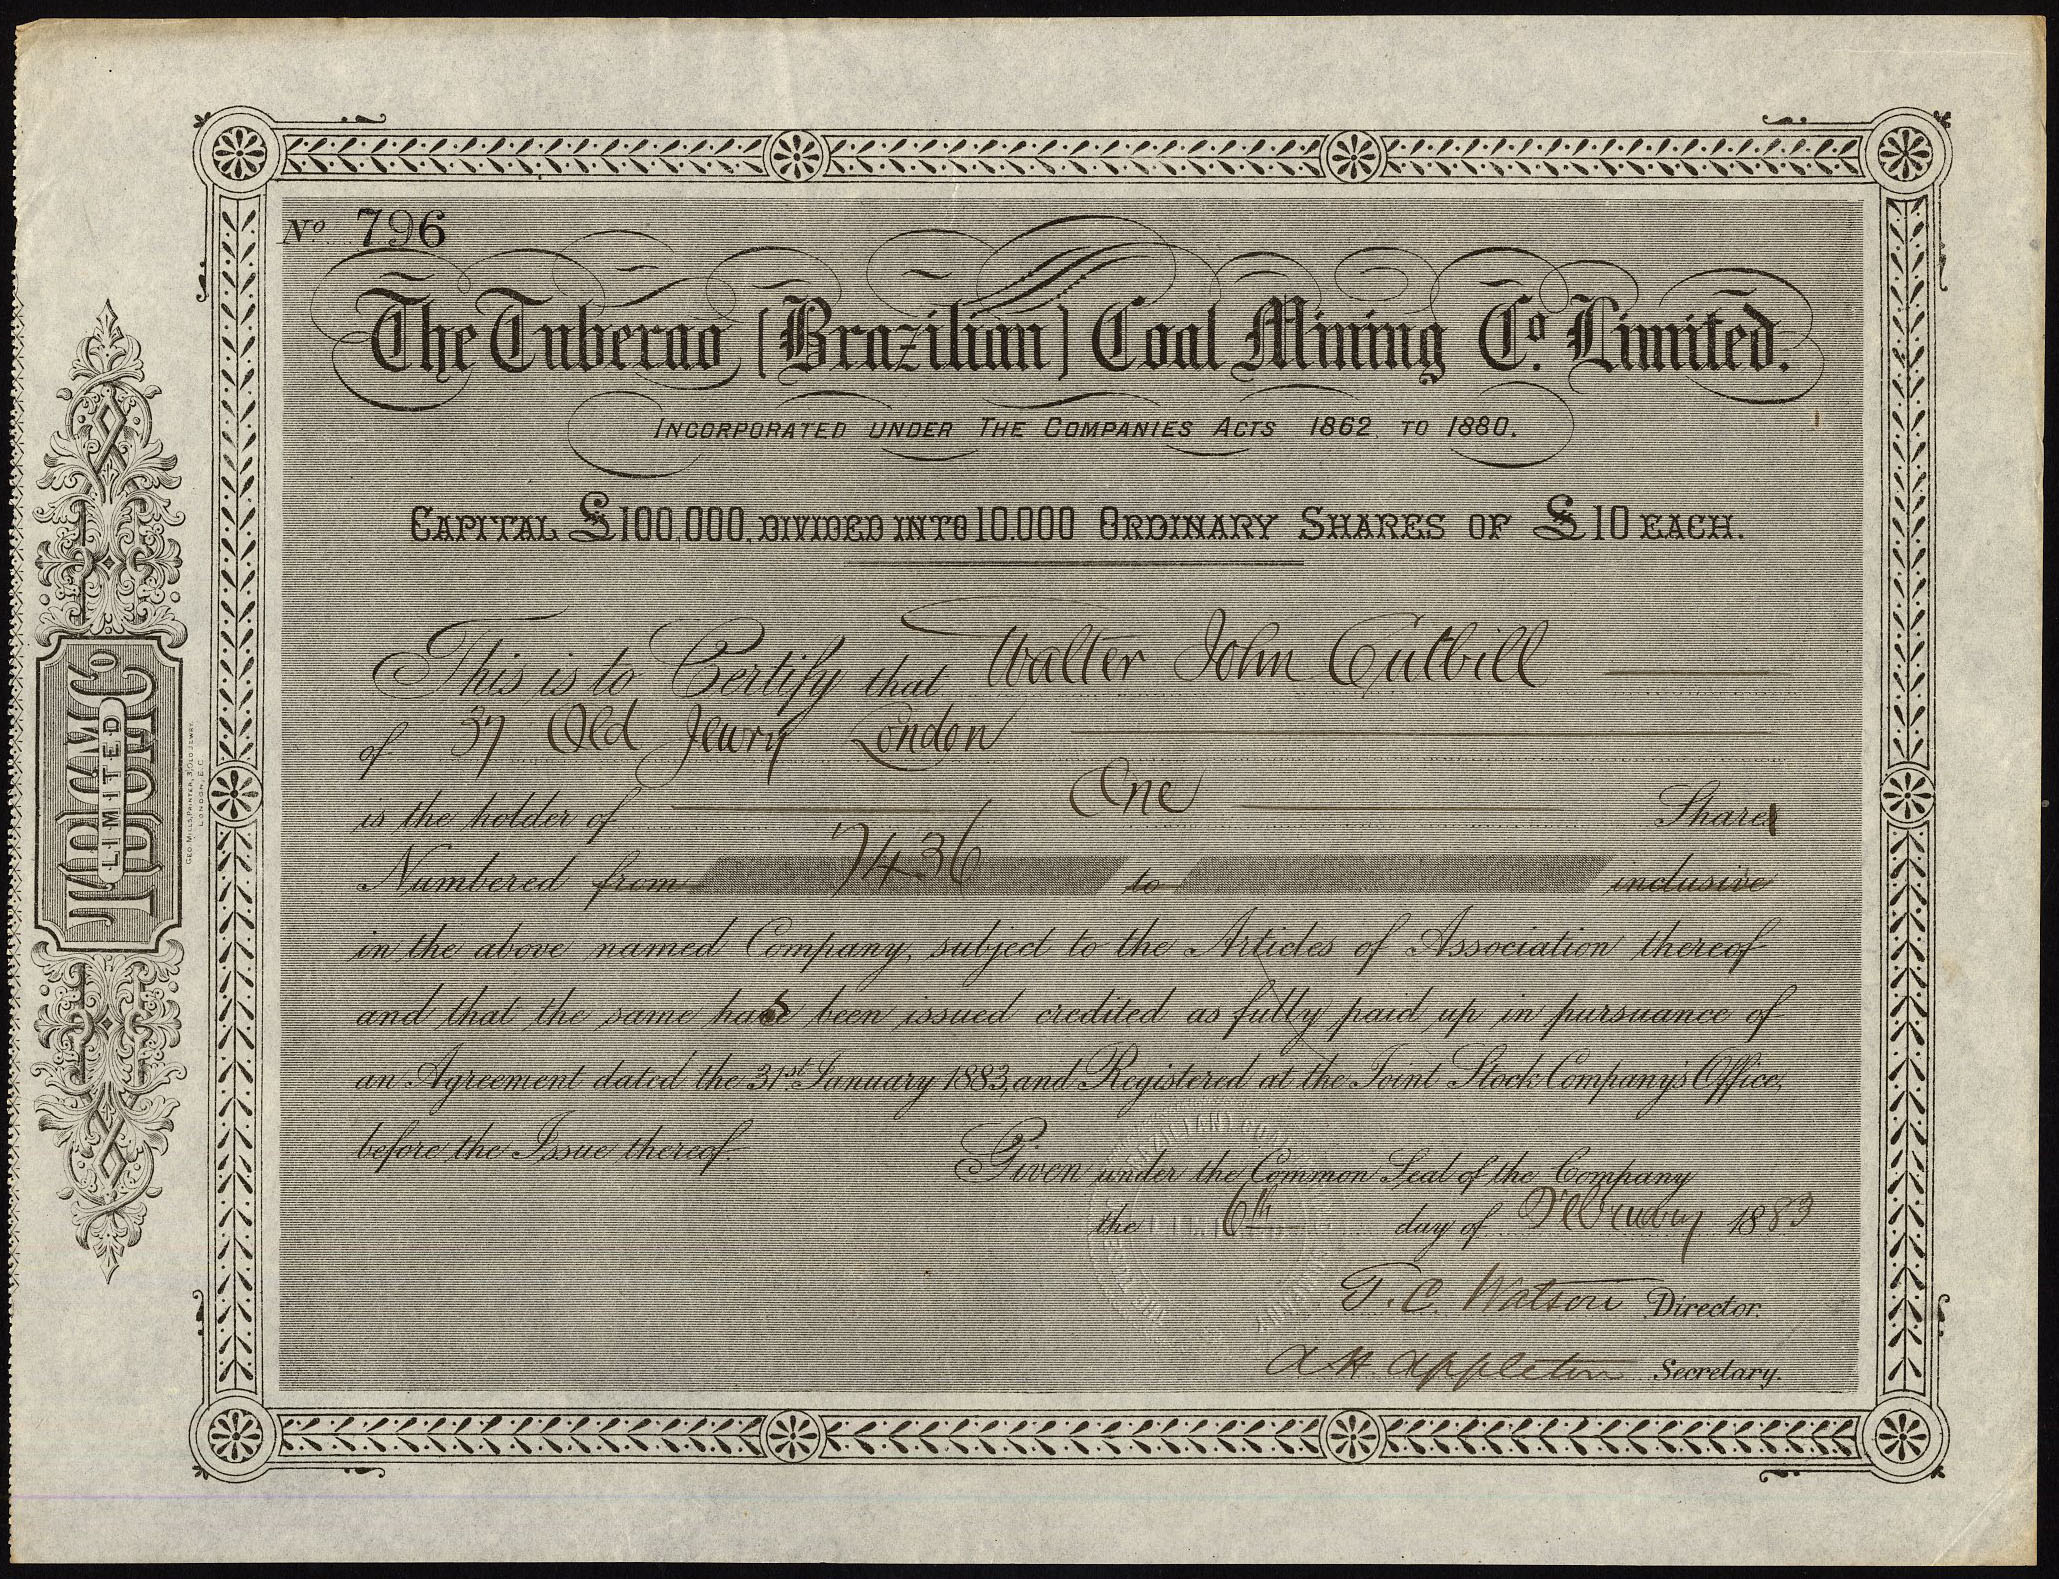 No 796
The Tuberao [Brazilian] Coal Mining Co. Limited.
INCORPORATED UNDER THE COMPANIES ACTS 1862 TO 1880.
CAPITAL £100,000, DIVIDED INTO 10.000 ORDINARY SHARES OF £10 EACH.
This is to Certify that Walter John Cutbill
of 37 Old Jewry London
is the holder of One Share
Numbered from 7436 to inclusive
in the above named Company, subject to the Articles of Association thereof
and that the same has been issued credited as fully paid up in pursuance of
an Agreement dated the 31st January 1883, and Registered at the Joint Stock Company's Office,
before the Issue thereof
Given under the Common Seal of the Company
the 6th day of February 1883
T. C. Watson Director.
A H. Appleton Secretary.
TBCMCo
LIMITED
GEO. MILLS, PRINTER, 3, OLD JEWRY,
LONDON, E.C.